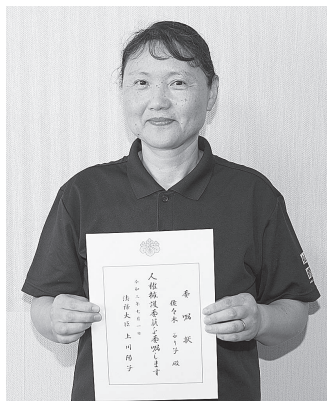 委嘱状
佐々木 ゆり子 殿
人権擁護委員を委嘱します
令和三年七月一日
法務大臣 上川陽子